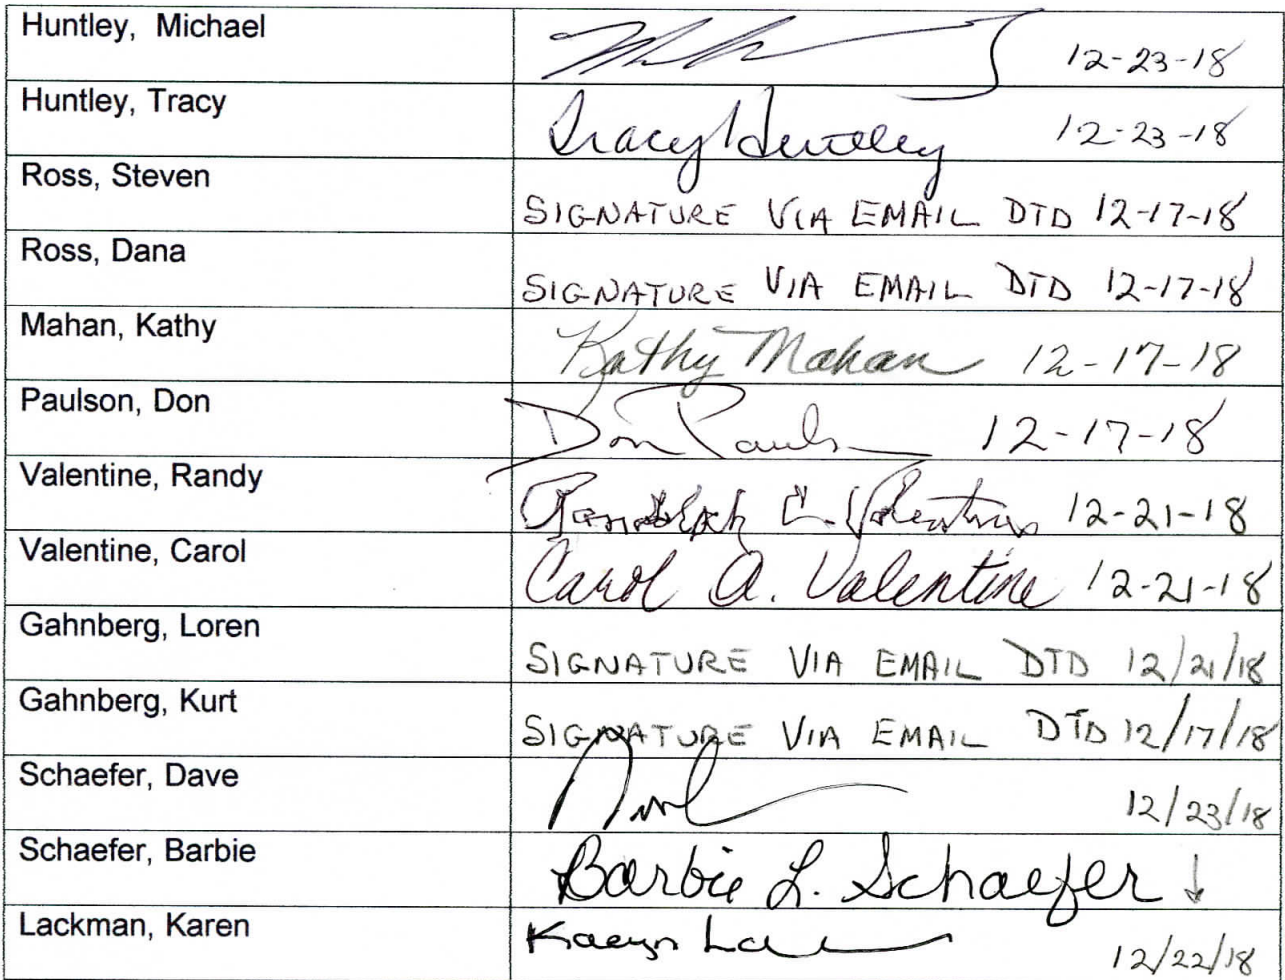 Huntley, Michael 12-23-18
Huntley, Tracy Tracy Huntley 12-23-18
Ross, Steven SIGNATURE VIA EMAIL DTD 12-17-18
Ross, Dana SIGNATURE VIA EMAIL DTD 12-17-18
Mahan, Kathy Kathy Mahan 12-17-18
Paulson, Don Don Pauls 12-17-18
Valentine, Randy Randolph C. Valentine 12-21-18
Valentine, Carol Carol A. Valentine 12-21-18
Gahnberg, Loren SIGNATURE VIA EMAIL DTD 12/21/18
Gahnberg, Kurt SIGNATURE VIA EMAIL DTD 12/17/18
Schaefer, Dave 12/23/18
Schaefer, Barbie Barbie L. Schaefer ↓
Lackman, Karen 12/22/18